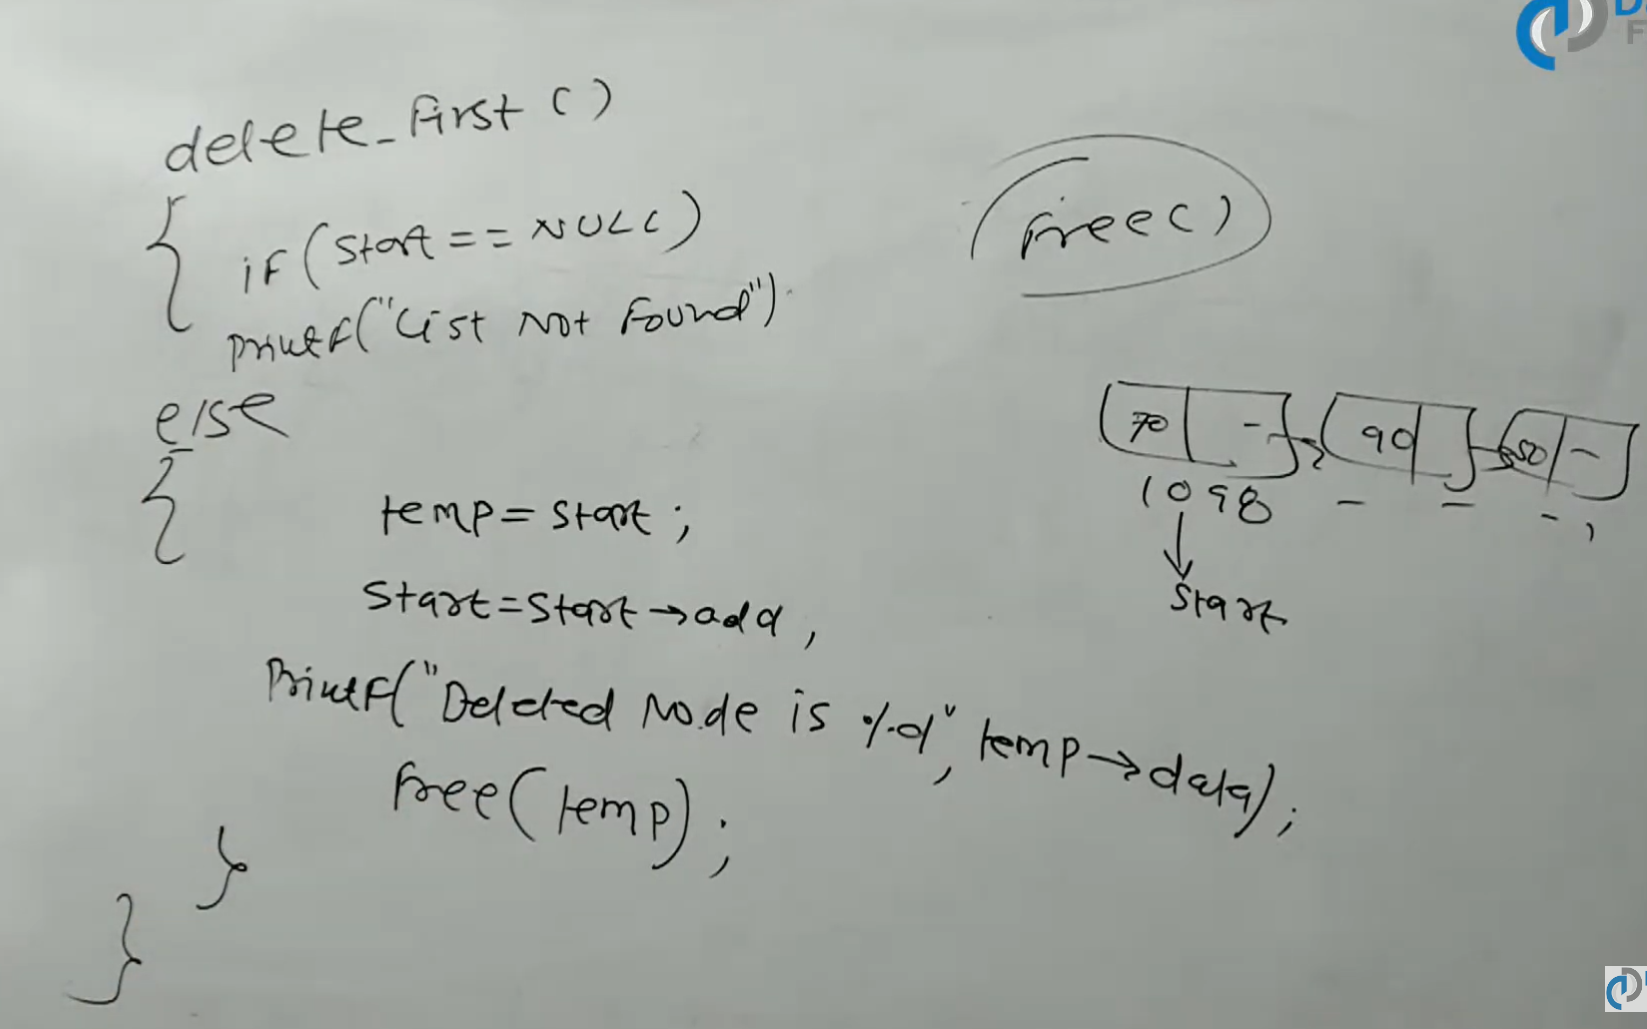 delete_first ()
{
if (start == NULL)
printf("List Not Found")
else
{
temp = start ;
start = start → add ,
Printf("Deleted Node is %d", temp → data) ;
free (temp) ;
}
}
free()
70 - 90 50 -
1098 - - - ,
start
D
F